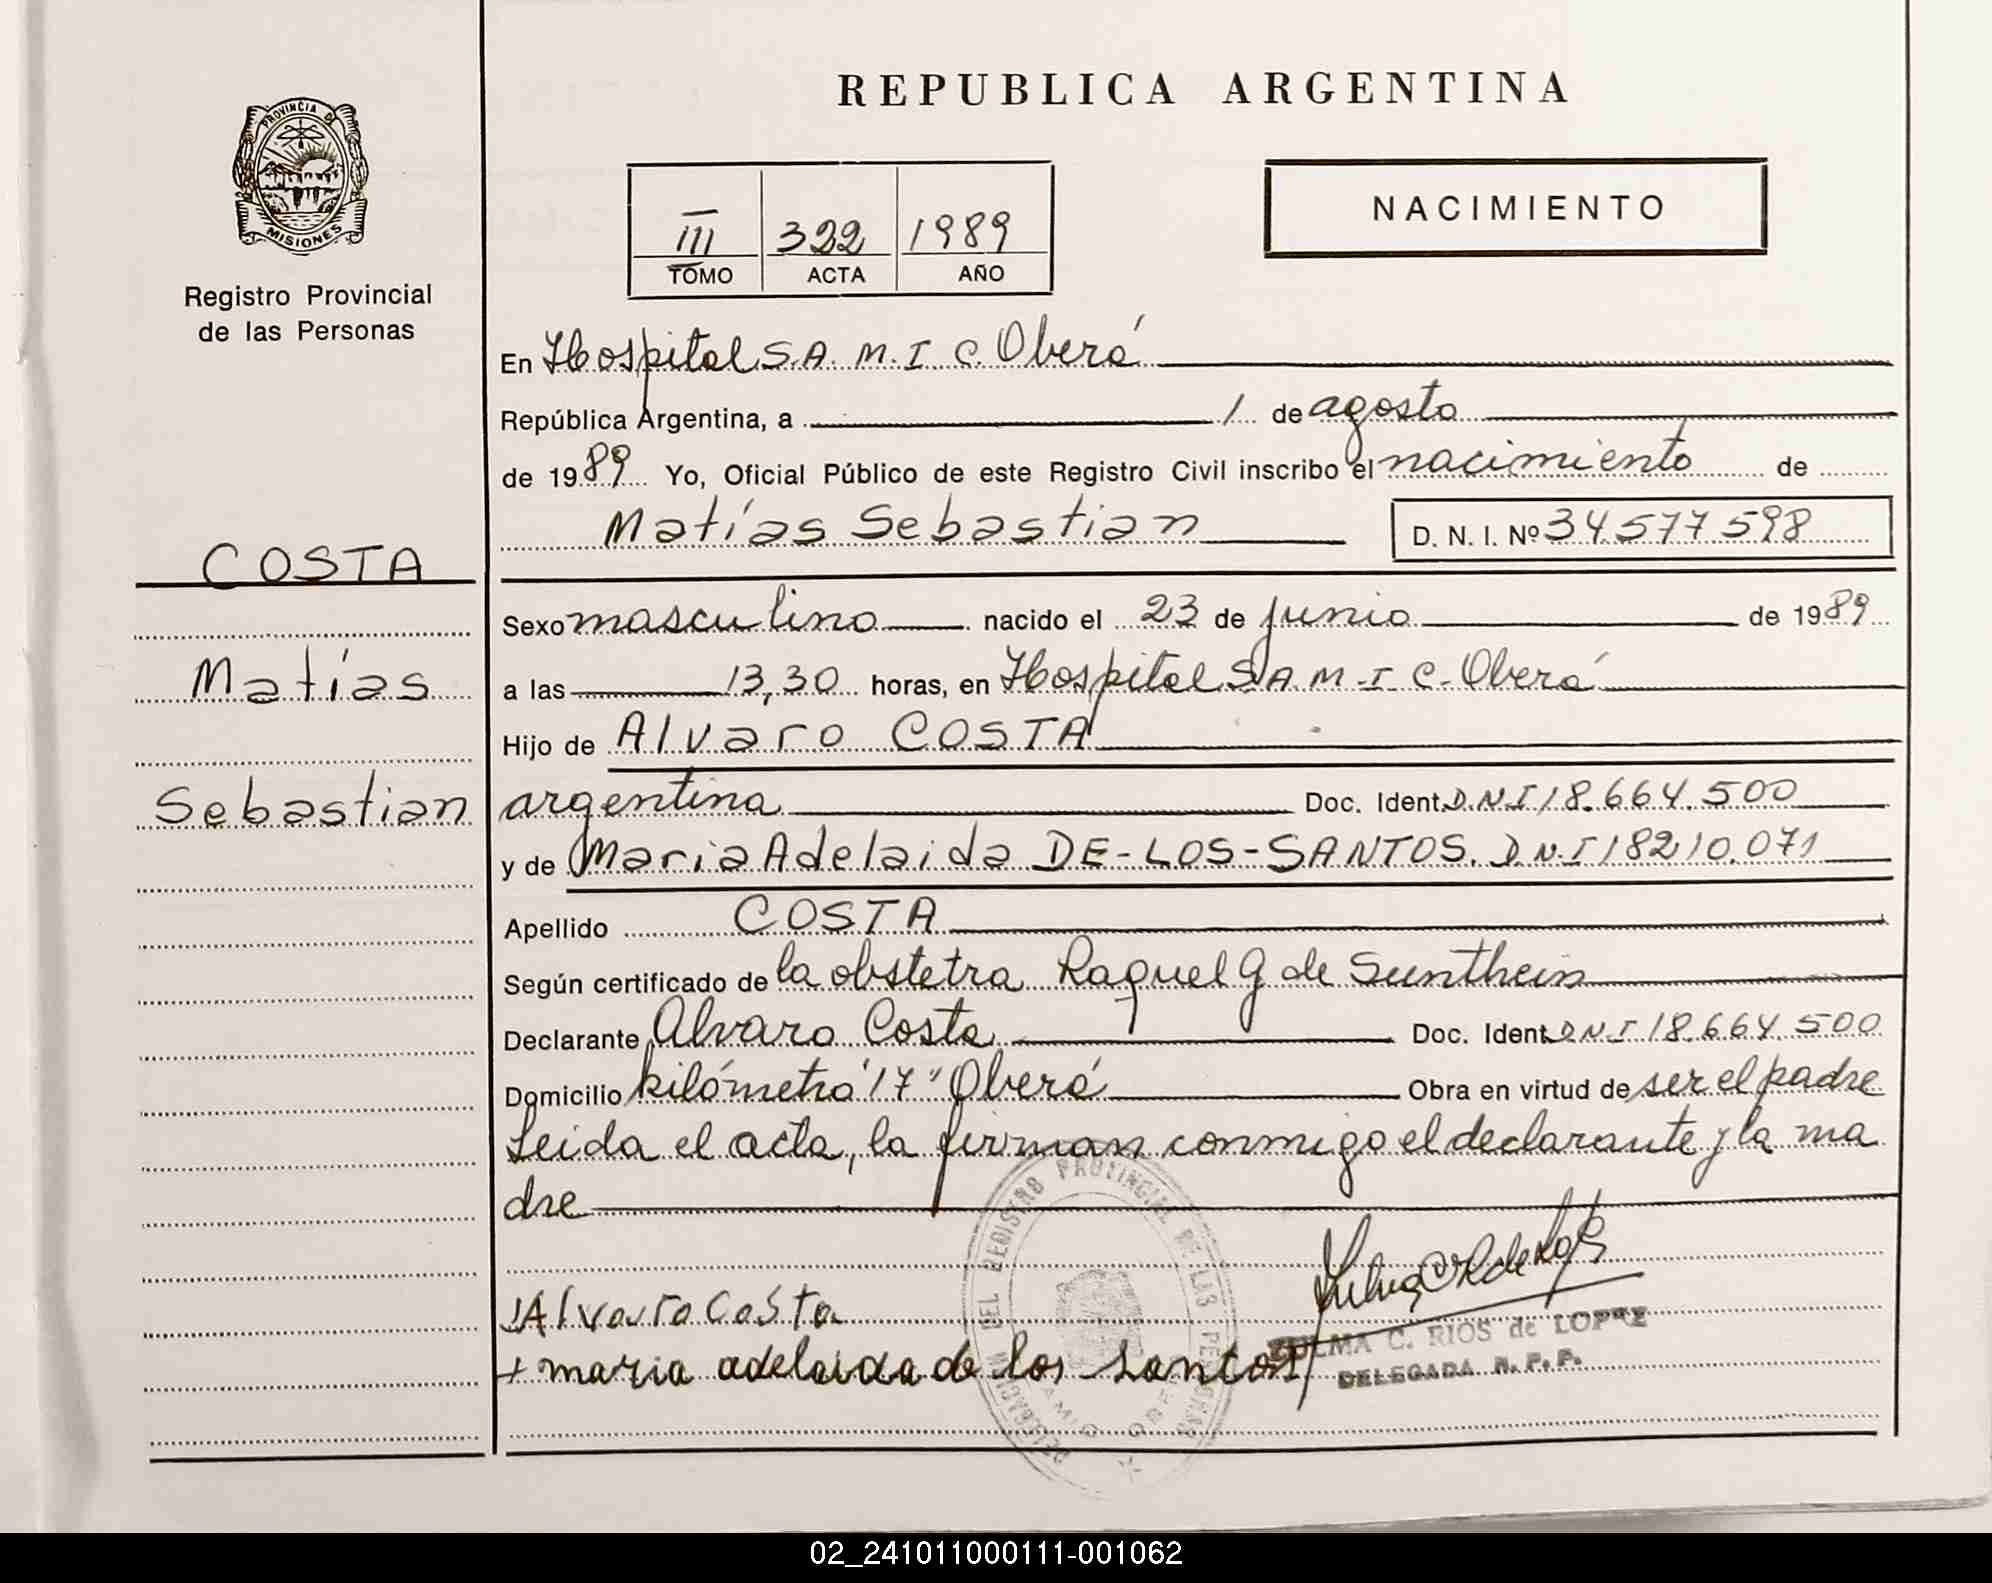 REPUBLICA ARGENTINA
PROVINCIA DE
MISIONES
Registro Provincial
de las Personas
III 322 1989
TOMO ACTA AÑO
NACIMIENTO
En Hospital S.A.M.I.C. Oberá
República Argentina, a 1 de agosto
de 1989 Yo, Oficial Público de este Registro Civil inscribo el nacimiento de
Matías Sebastian D. N. I. Nº 34577598
COSTA
Matías
Sebastian
Sexo masculino nacido el 23 de junio de 1989
a las 13,30 horas, en Hospital S.A.M.I.C. Oberá
Hijo de Alvaro COSTA
argentina Doc. Ident. D.N.I 18.664.500
y de Maria Adelaida DE-LOS-SANTOS. D.N.I 18210.071
Apellido COSTA
Según certificado de la obstetra Raquel G de Sunthein
Declarante Alvaro Costa Doc. Ident. D.N.I 18.664.500
Domicilio kilómetro "17" Oberá Obra en virtud de ser el padre
Leida el acta, la firman conmigo el declarante y la ma
dre
Alvaro Costa
+ maria adelaida de los santos
DELEGACION DEL REGISTRO PROVINCIAL DE LAS PERSONAS
ZULMA C. RIOS de LOPEZ
DELEGADA R. P. P.
02_241011000111-001062